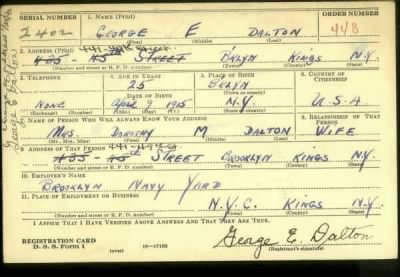 SERIAL NUMBER 1. NAME (Print) ORDER NUMBER
2402 GEORGE E DALTON 448
(First) (Middle) (Last)
2. ADDRESS (Print)
STREET BKLYN KINGS N.Y.
(Number and street or R. F. D. number) (Town) (County) (State)
3. TELEPHONE 4. AGE IN YEARS 5. PLACE OF BIRTH 6. COUNTRY OF CITIZENSHIP
25 BKLYN
NONE DATE OF BIRTH April 9 1915 N.Y. U.S.A
(Exchange) (Number) (Mo.) (Day) (Yr.) (State or country)
7. NAME OF PERSON WHO WILL ALWAYS KNOW YOUR ADDRESS 8. RELATIONSHIP OF THAT PERSON
MRS. DOROTHY M DALTON WIFE
(Mr., Mrs., Miss) (First) (Middle) (Last)
9. ADDRESS OF THAT PERSON
STREET BROOKLYN KINGS N.Y.
(Number and street or R. F. D. number) (Town) (County) (State)
10. EMPLOYER'S NAME
BROOKLYN NAVY YARD
11. PLACE OF EMPLOYMENT OR BUSINESS
N.Y.C. KINGS N.Y.
(Number and street or R. F. D. number) (Town) (County) (State)
I AFFIRM THAT I HAVE VERIFIED ABOVE ANSWERS AND THAT THEY ARE TRUE.
REGISTRATION CARD
D. S. S. Form 1 (over) 16—17105
George E. Dalton
(Registrant's signature)